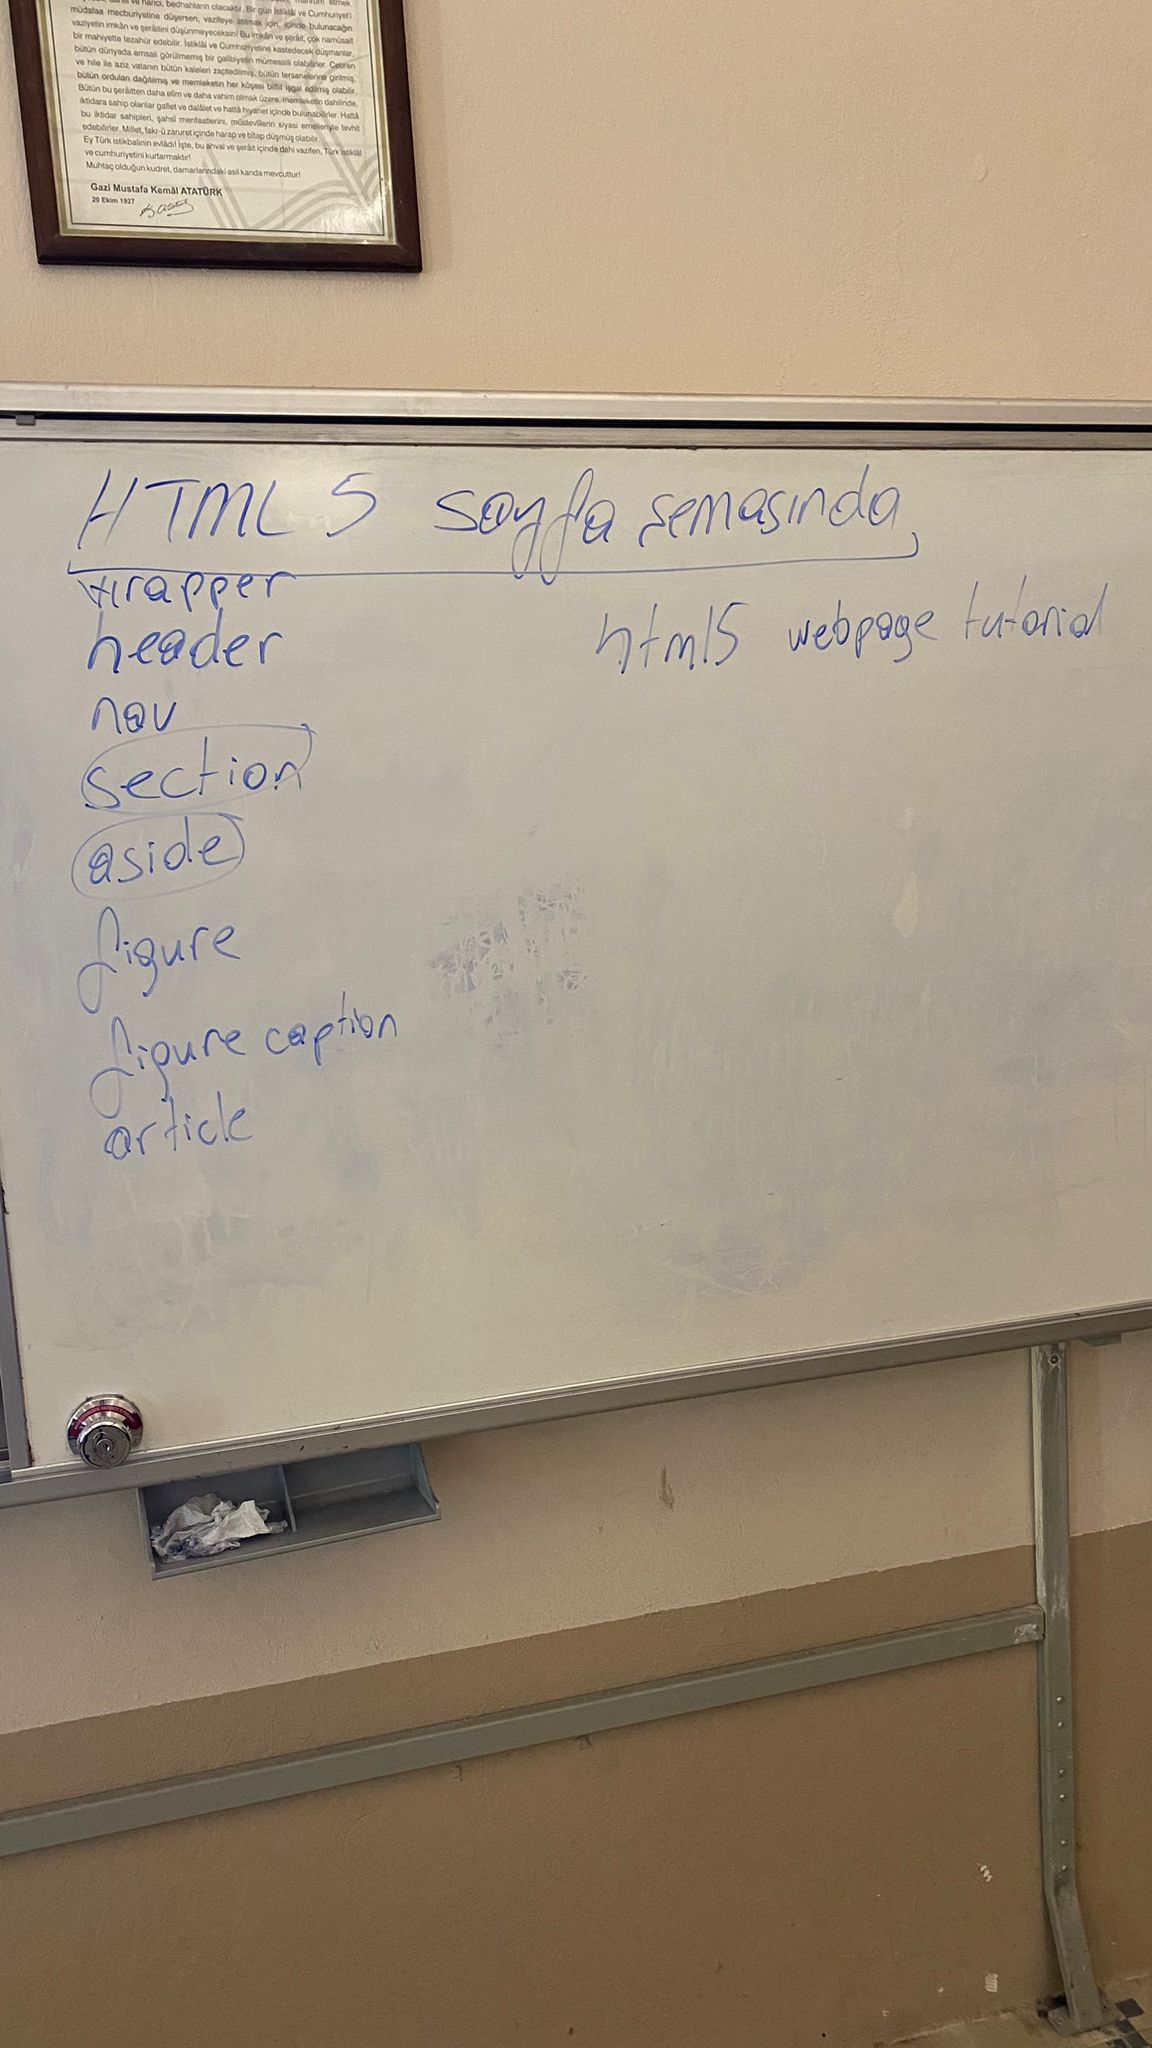 müdafaa mecburiyetine düşersen, vazifeye atılmak için, içinde bulunacağın
vaziyetin imkân ve şerâitini düşünmeyeceksin! Bu imkân ve şerâit, çok namüsait
bir mahiyette tezahür edebilir. İstiklâl ve Cumhuriyetine kastedecek düşmanlar,
bütün dünyada emsali görülmemiş bir galibiyetin mümessili olabilirler. Cebren
ve hile ile aziz vatanın bütün kaleleri zaptedilmiş, bütün tersanelerine girilmiş,
bütün orduları dağıtılmış ve memleketin her köşesi bilfiil işgal edilmiş olabilir.
Bütün bu şerâitten daha elim ve daha vahim olmak üzere, memleketin dahilinde,
iktidara sahip olanlar gaflet ve dalâlet ve hattâ hıyanet içinde bulunabilirler. Hattâ
bu iktidar sahipleri, şahsî menfaatlerini, müstevlilerin siyasi emelleriyle tevhit
edebilirler. Millet, fakr-ü zaruret içinde harap ve bîtap düşmüş olabilir.
Ey Türk istikbalinin evlâdı! İşte, bu ahval ve şerâit içinde dahi vazifen, Türk istiklâl
ve cumhuriyetini kurtarmaktır!
Muhtaç olduğun kudret, damarlarındaki asil kanda mevcuttur!
Gazi Mustafa Kemâl ATATÜRK
20 Ekim 1927
HTML 5 sayfa şemasında
wrapper
header
html5 webpage tutorial
nav
section
aside
figure
figure caption
article